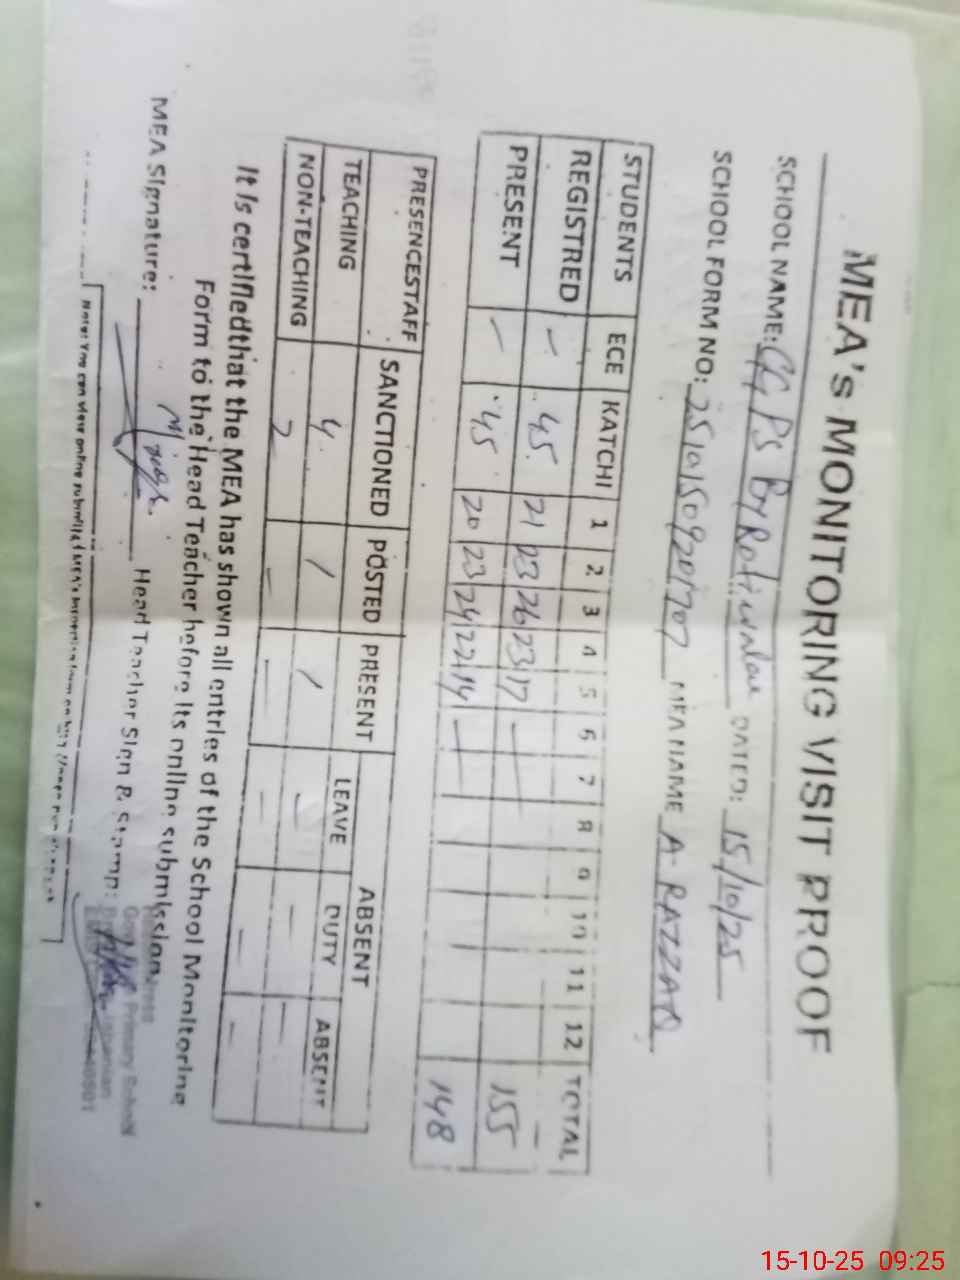 MEA's MONITORING VISIT PROOF
SCHOOL NAME: GGPS DATED: 15/10/25
SCHOOL FORM NO: MEA NAME A. RAZZAQ
STUDENTS ECE KATCHI 1 2 3 4 5 6 7 8 9 10 11 12 TOTAL
REGISTRED - 45 21 23 26 23 17 - 155
PRESENT - 45 20 23 24 22 14 - 148
PRESENCESTAFF SANCTIONED POSTED PRESENT ABSENT
LEAVE DUTY ABSENT
TEACHING 4 / / - - -
NON-TEACHING 2 - - - - -
It is certifiedthat the MEA has shown all entries of the School Monitoring
Form to the Head Teacher before its online submission.
MEA Signature: Head Teacher Sign & Stamp:
Primary School
Note: You can view online submitted MEA's
15-10-25 09:25